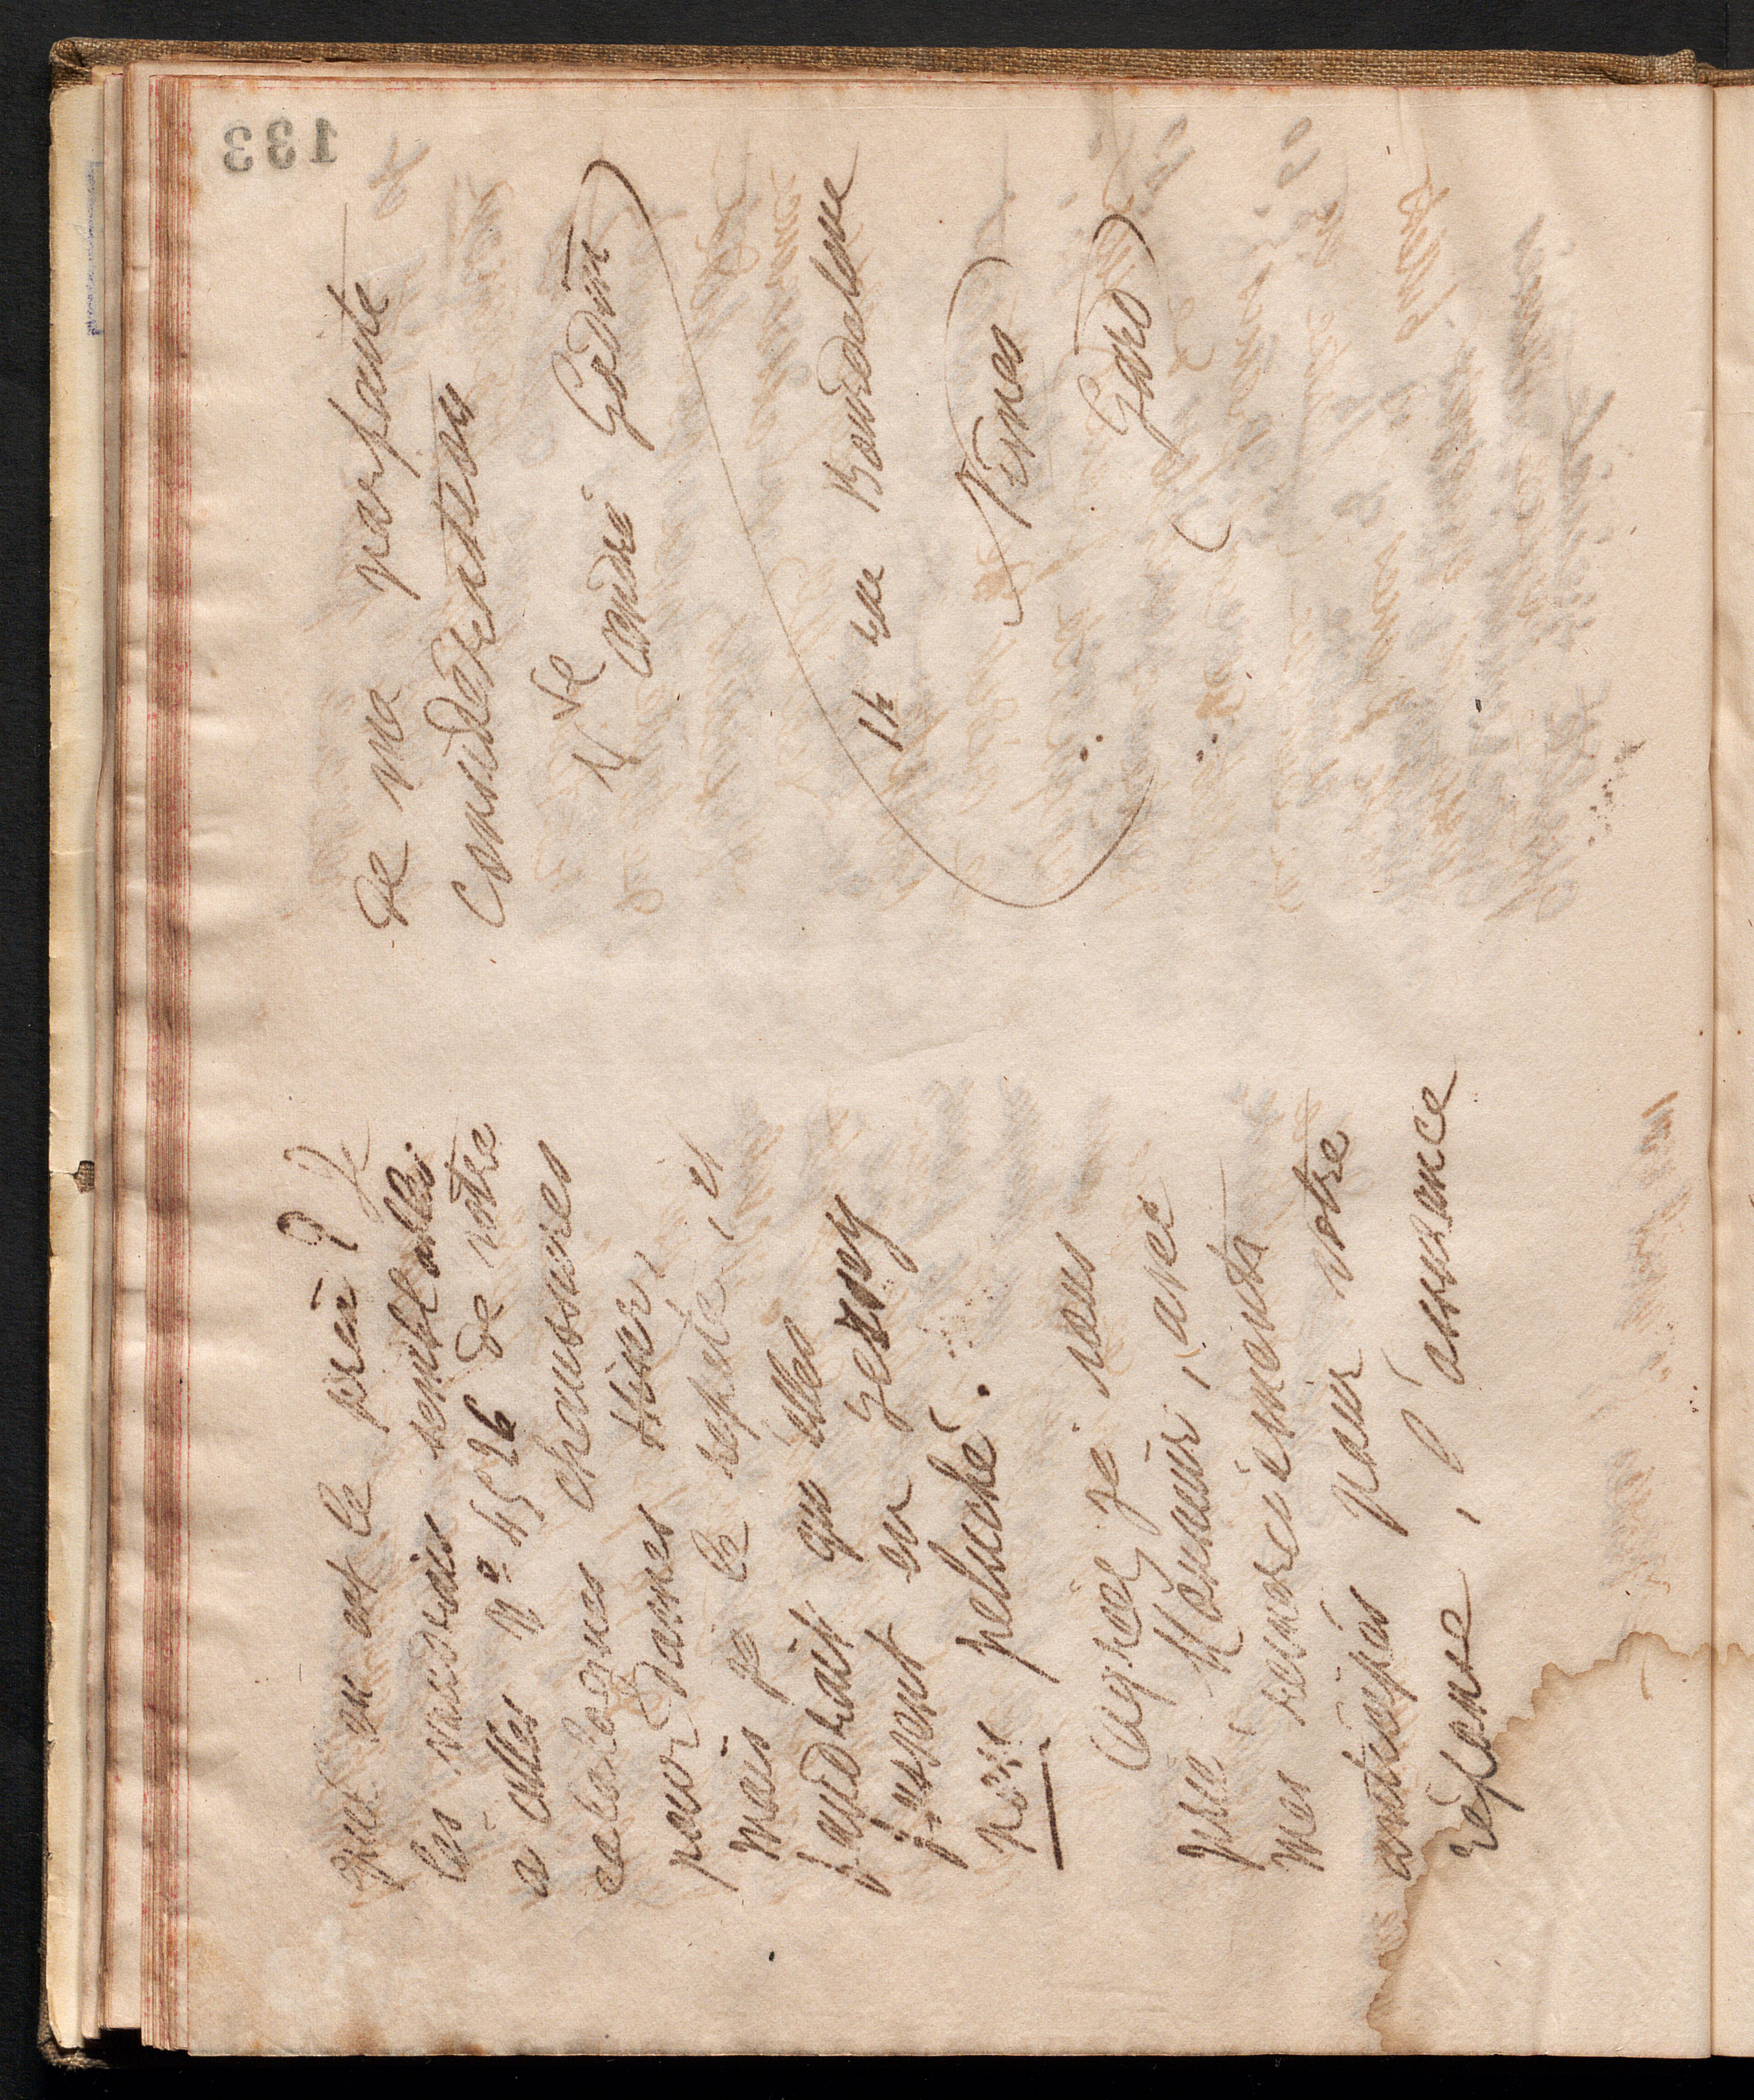 quel en est le prix ? Je
les voudrais semblables
a celles N° 4526 de votre
catalogues chaussures
pour dames Hiver,
mais je le repete, et
faudrait qu elles
fussent en Jersey
noir peluché.
Agréez je vous
prie Monsieur, avec
mes remerciements
anticipés pour votre
réponse, l'assurance
de ma parfaite
consideration
Vve
André Godin
14 rue Bourdaloue
Nimes
Gard
133